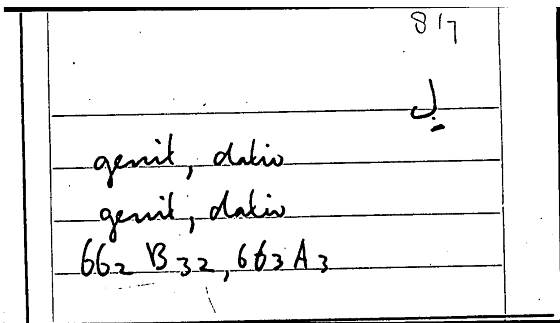 817
لِ
genit, dativ
genit, dativ
662 B 32, 663 A 3